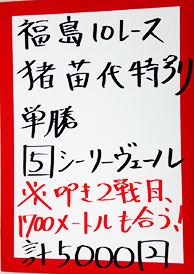 福島10レース
猪苗代特別
単勝
5シーリーヴェール
※叩き2戦目、
1700メートルも合う!
計5000円